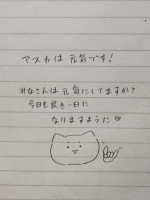 アスカは元気です！
みなさんは元気にしてますか？
今日も良き一日に
なりますように